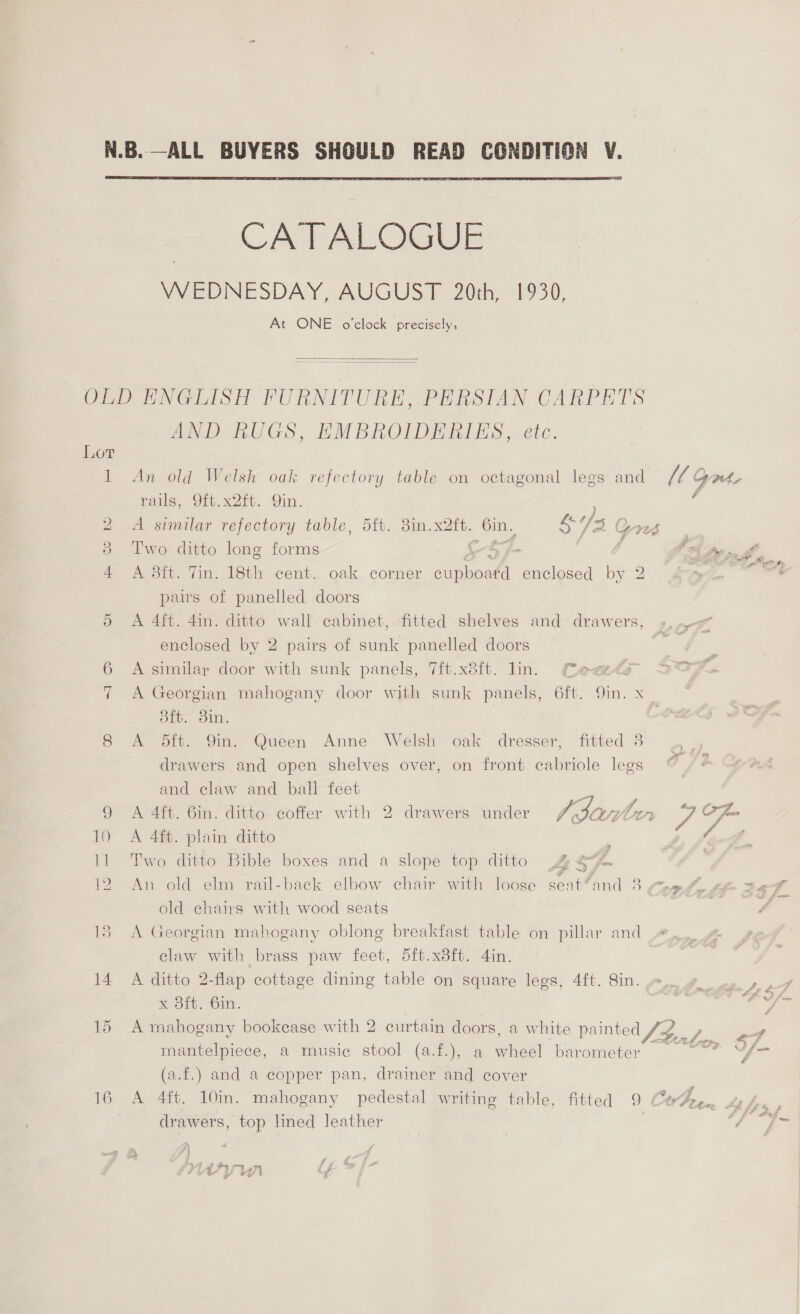 N.B.—ALL BUYERS SHOULD READ CONDITION V.
CATALOGUE
WEDNESDAY, AUGUST 20th, 1930,
At ONE o'clock precisely,
OLD ENGLISH FURNITURE, PERSIAN CARPETS
AND RUGS, EMBROIDERIES, etc.
Lot
1 An old Welsh oak refectory table on octagonal legs and
rails, 9ft.x2ft. 9in.
2 A similar refectory table, 5ft. 3in.x2ft. 6in. 5½ Gns
3 Two ditto long forms
4 A 3ft. 7in. 18th cent. oak corner cupboard enclosed by 2
pairs of panelled doors
5 A 4ft. 4in. ditto wall cabinet, fitted shelves and drawers,
enclosed by 2 pairs of sunk panelled doors
6 A similar door with sunk panels, 7ft.x3ft. 1in.
7 A Georgian mahogany door with sunk panels, 6ft. 9in. x
3ft. 3in.
8 A 5ft. 9in. Queen Anne Welsh oak dresser, fitted 3
drawers and open shelves over, on front cabriole legs
and claw and ball feet
9 A 4ft. 6in. ditto coffer with 2 drawers under
10 A 4ft. plain ditto
11 Two ditto Bible boxes and a slope top ditto
12 An old elm rail-back elbow chair with loose seat and 3
old chairs with wood seats
13 A Georgian mahogany oblong breakfast table on pillar and
claw with brass paw feet, 5ft.x3ft. 4in.
14 A ditto 2-flap cottage dining table on square legs, 4ft. 8in.
x 3ft. 6in.
15 A mahogany bookcase with 2 curtain doors, a white painted
mantelpiece, a music stool (a.f.), a wheel barometer
(a.f.) and a copper pan, drainer and cover
16 A 4ft. 10in. mahogany pedestal writing table, fitted 9
drawers, top lined leather